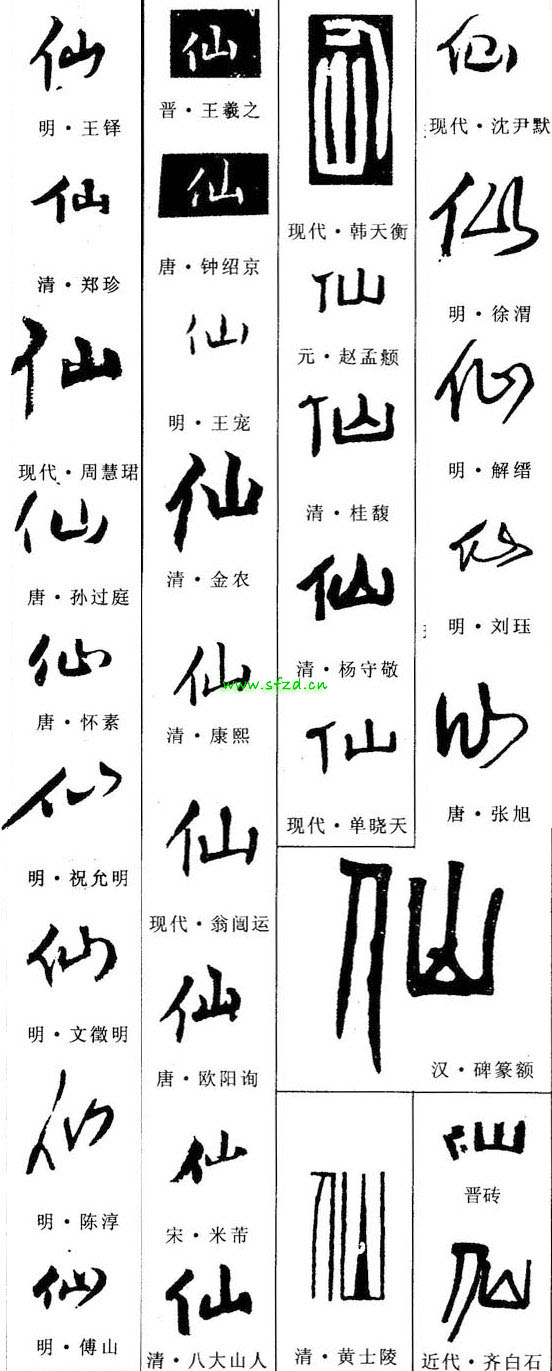 仙
明·王铎
仙
清·郑珍
仙
现代·周慧珺
仙
唐·孙过庭
仙
唐·怀素
仙
明·祝允明
仙
明·文徵明
仙
明·陈淳
仙
明·傅山
仙
晋·王羲之
仙
唐·钟绍京
仙
明·王宠
仙
清·金农
仙
清·康熙
www.sfzd.cn
仙
现代·翁闿运
仙
唐·欧阳询
仙
宋·米芾
仙
清·八大山人
仙
现代·韩天衡
仙
元·赵孟頫
仙
清·桂馥
仙
清·杨守敬
仙
现代·单晓天
仙
现代·沈尹默
仙
明·徐渭
仙
明·解缙
仙
明·刘珏
仙
唐·张旭
仙
汉·碑篆额
仙
清·黄士陵
仙
晋砖
仙
近代·齐白石